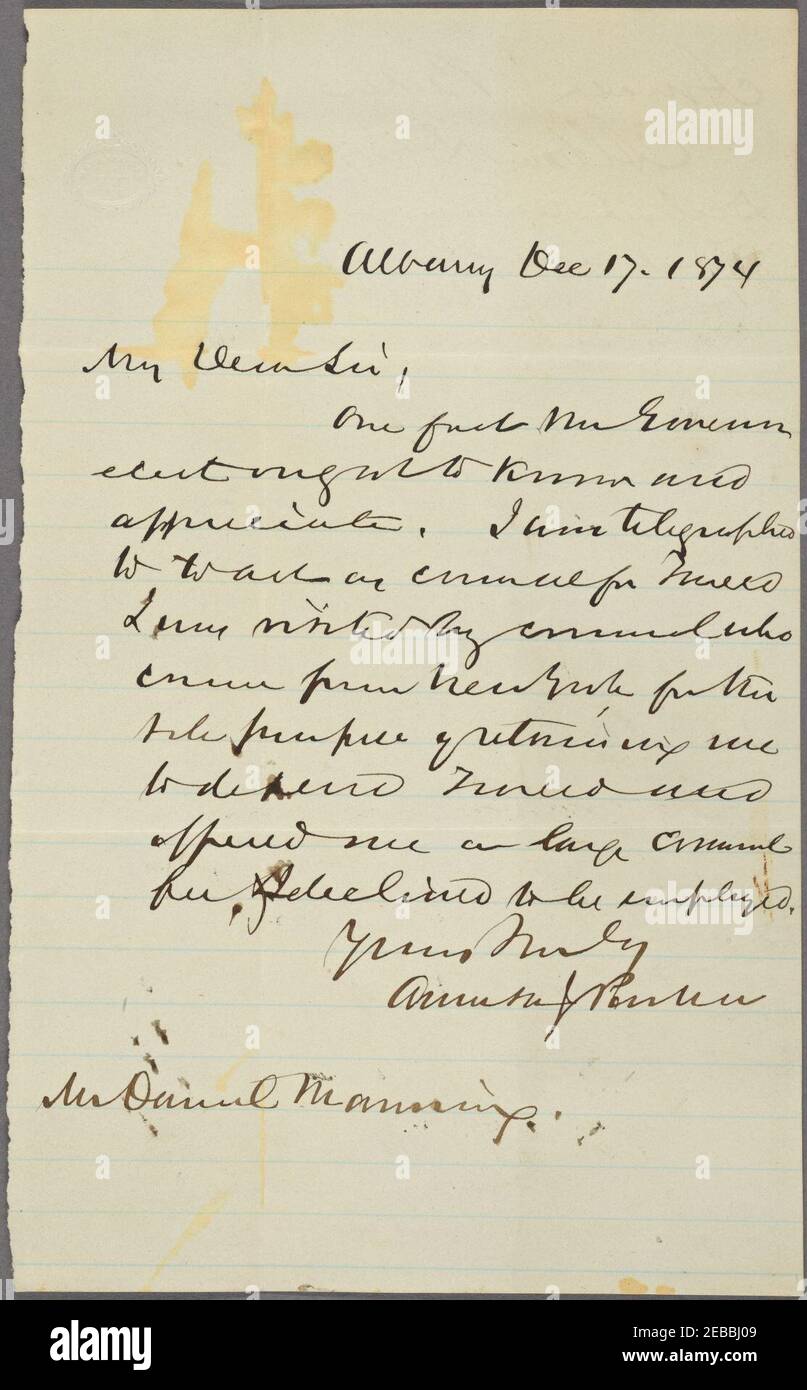 Albany Dec 17. 1874
My Dear Sir,
One fact the Governor
elect ought to know and
appreciate. I am telegraphed
to to act as counsel for Tweed
I am visited by counsel who
came from New York for the
sole purpose of retaining me
to defend Tweed and
offered me a large counsel
fee, I declined to be employed.
Yours Truly
Amasa J Parker
Mr Daniel Manning.
alamy
alamy
alamy
Image ID: 2EBBJ09
www.alamy.com